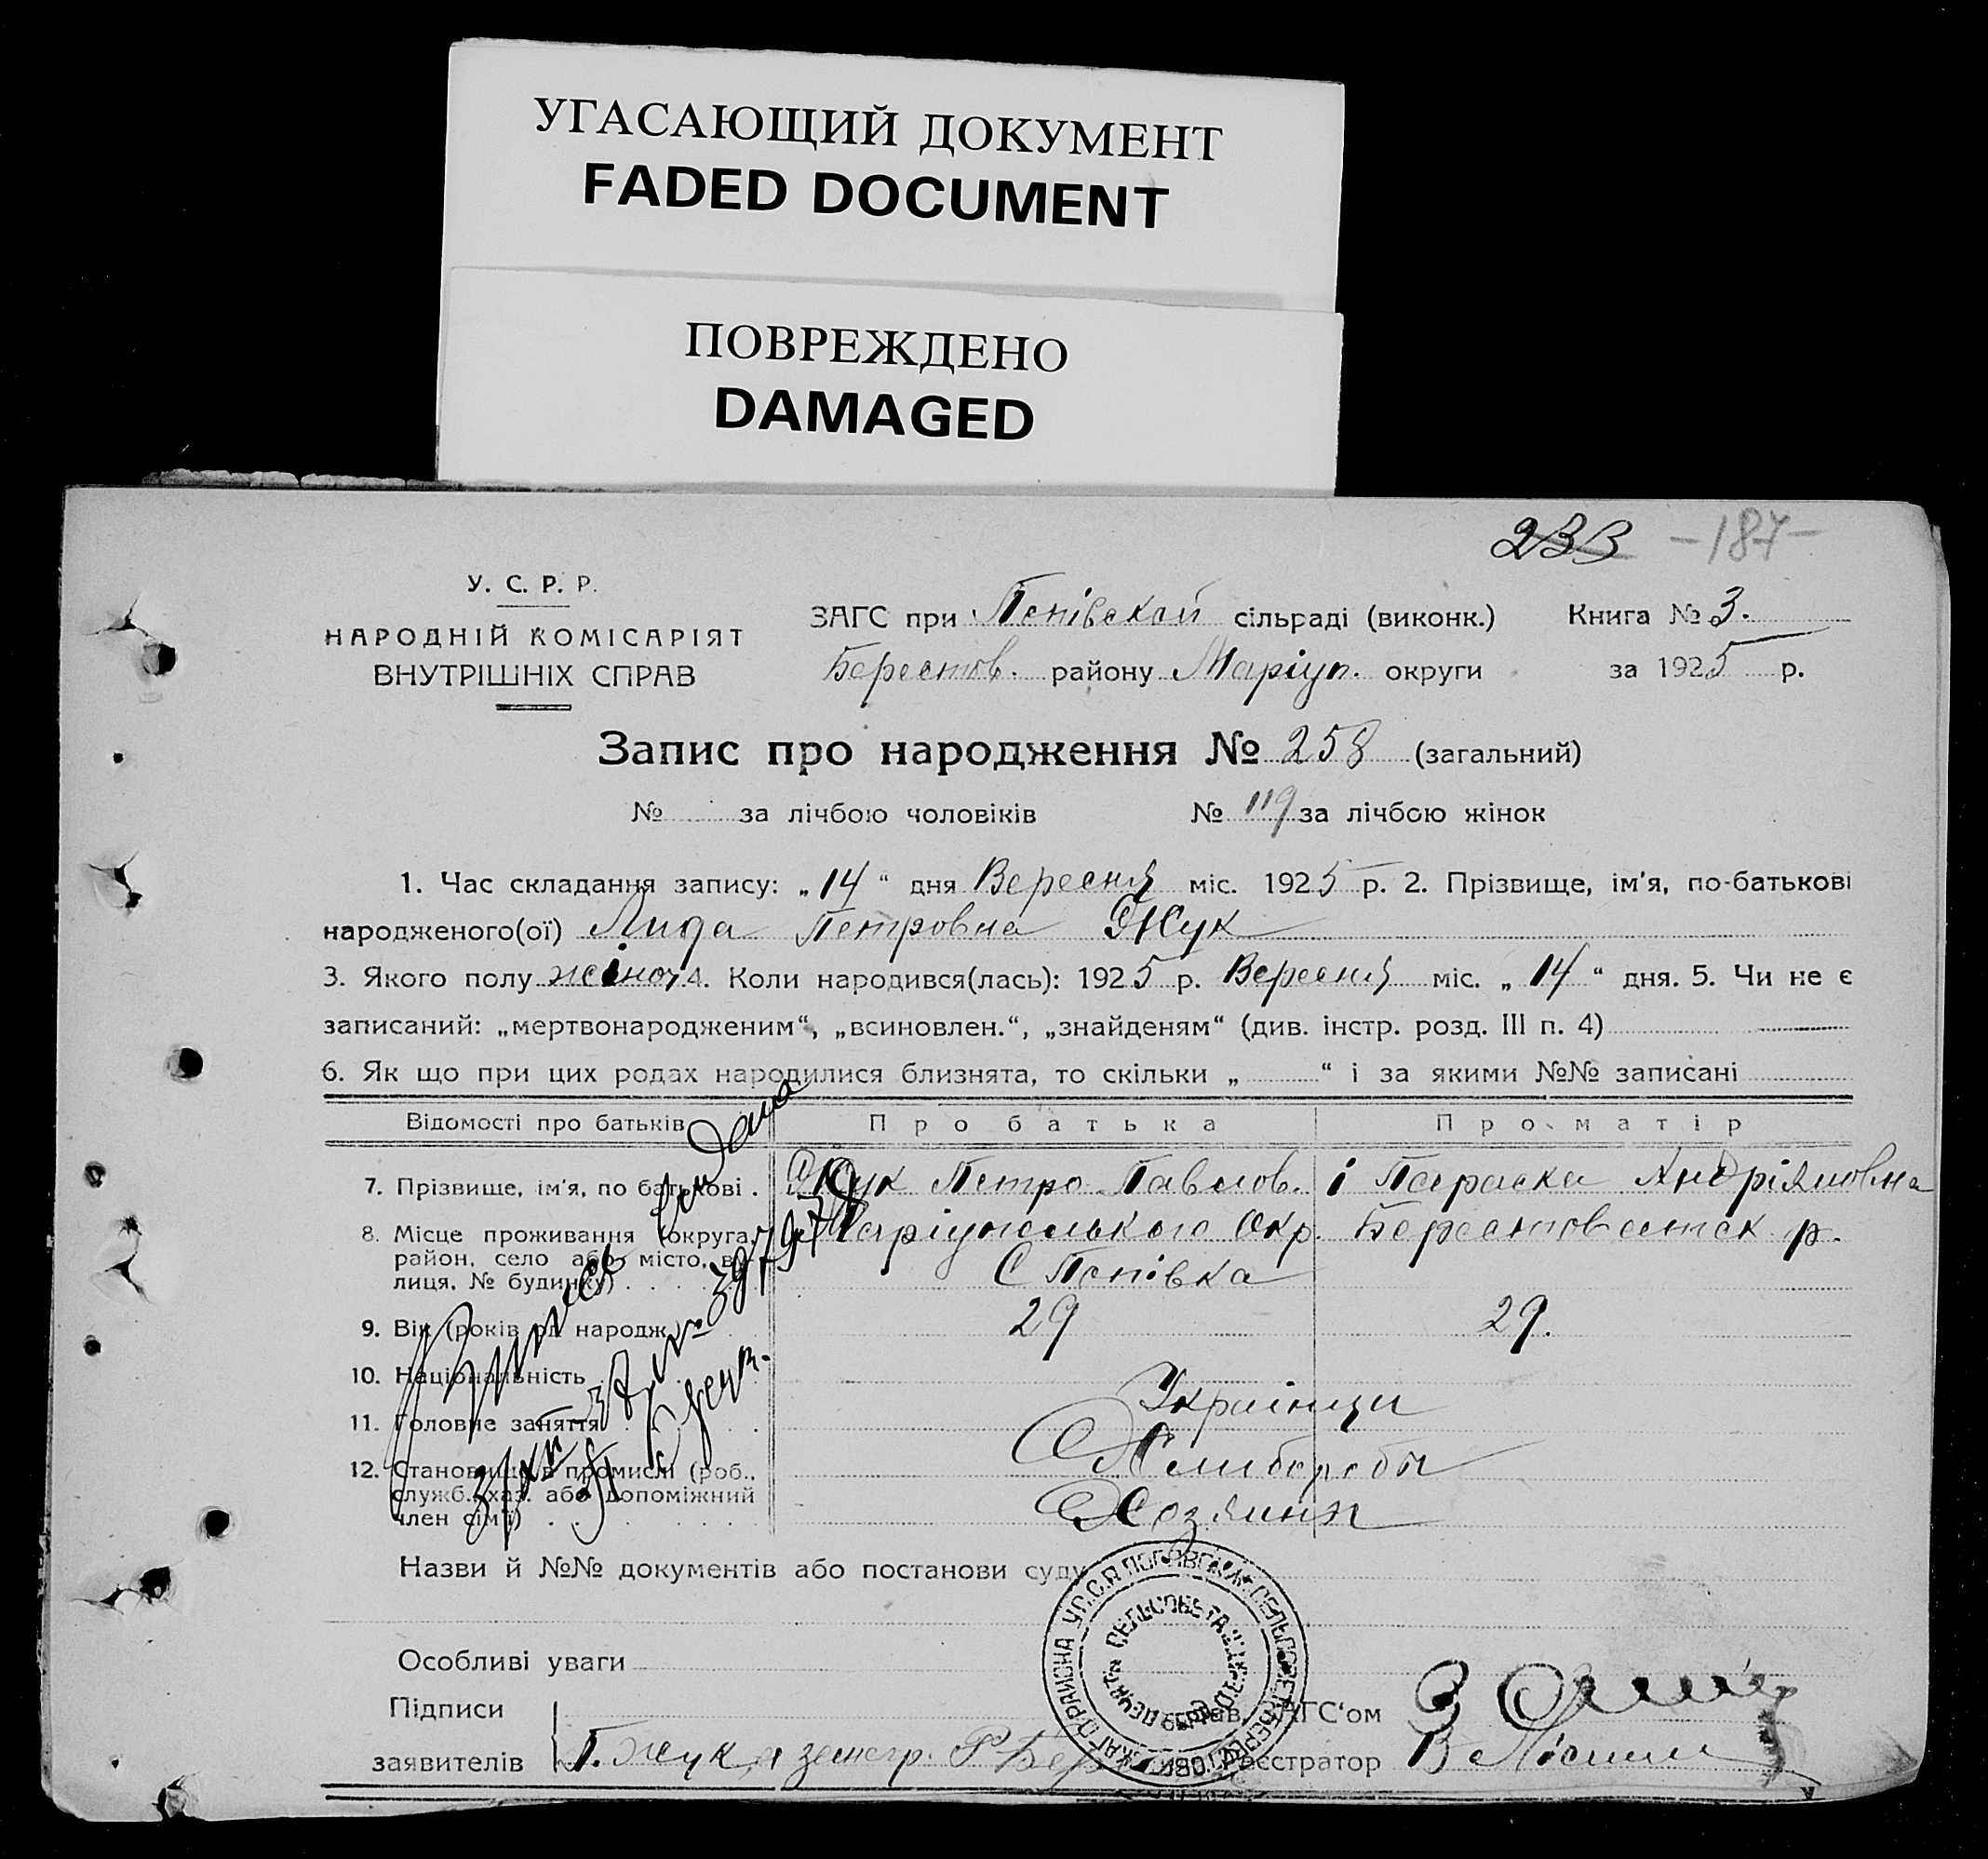 УГАСАЮЩИЙ ДОКУМЕНТ
FADED DOCUMENT
ПОВРЕЖДЕНО
DAMAGED
233 -187-
У. С. Р. Р.
НАРОДНІЙ КОМІСАРІЯТ
ВНУТРІШНІХ СПРАВ
ЗАГС при Попівской сільраді (виконк.) Книга № 3.
Берестов. району Маріуп. округи за 1925 р.
Запис про народження № 258 (загальний)
№ за лічбою чоловіків № 119 за лічбою жінок
1. Час складання запису: „14“ дня Вересня міс. 1925 р. 2. Прізвище, ім'я, по-батькові
народженого(ої) Лида Петровна Жук
3. Якого полу жіноч 4. Коли народився(лась): 1925 р. Вересня міс. „14“ дня. 5. Чи не є
записаний: „мертвонародженим“, „всиновлен.“, „знайденям“ (див. інстр. розд. III п. 4)
6. Як що при цих родах народилися близнята, то скільки „ “ і за якими №№ записані
Відомості про батьків Про батька Про матір
7. Прізвище, ім'я, по батькові . Жук Петро Павлов. і Параска Андріяновна
8. Місце проживання (округа, Маріупольького Окр. Берестоветск р.
район, село або місто, ву-
лиця, № будинку) С Попівка
9. Вік (років від народж.) 29 29.
10. Національність Українци
11. Головне заняття Хлибороби
12. Становище в промислі (роб.,
служб., хаз. або допоміжний
член сім'ї) Хозяини
Назви й №№ документів або постанови суду
Особливі уваги
Підписи Зав. ЗАГС'ом
заявителів П. Жук а Реєстратор